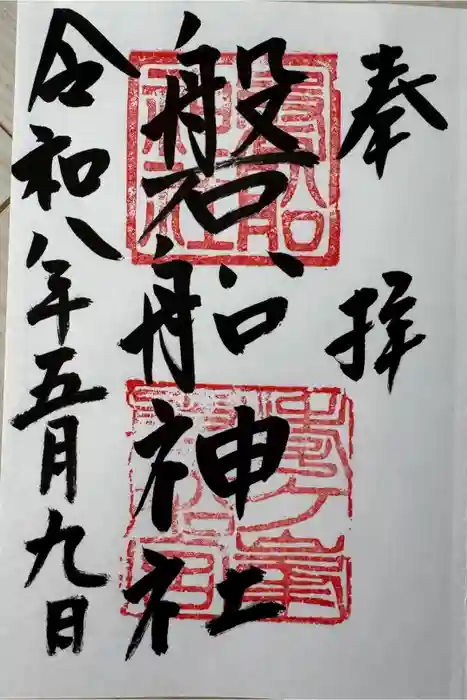 奉拝
磐船神社
令和八年五月九日